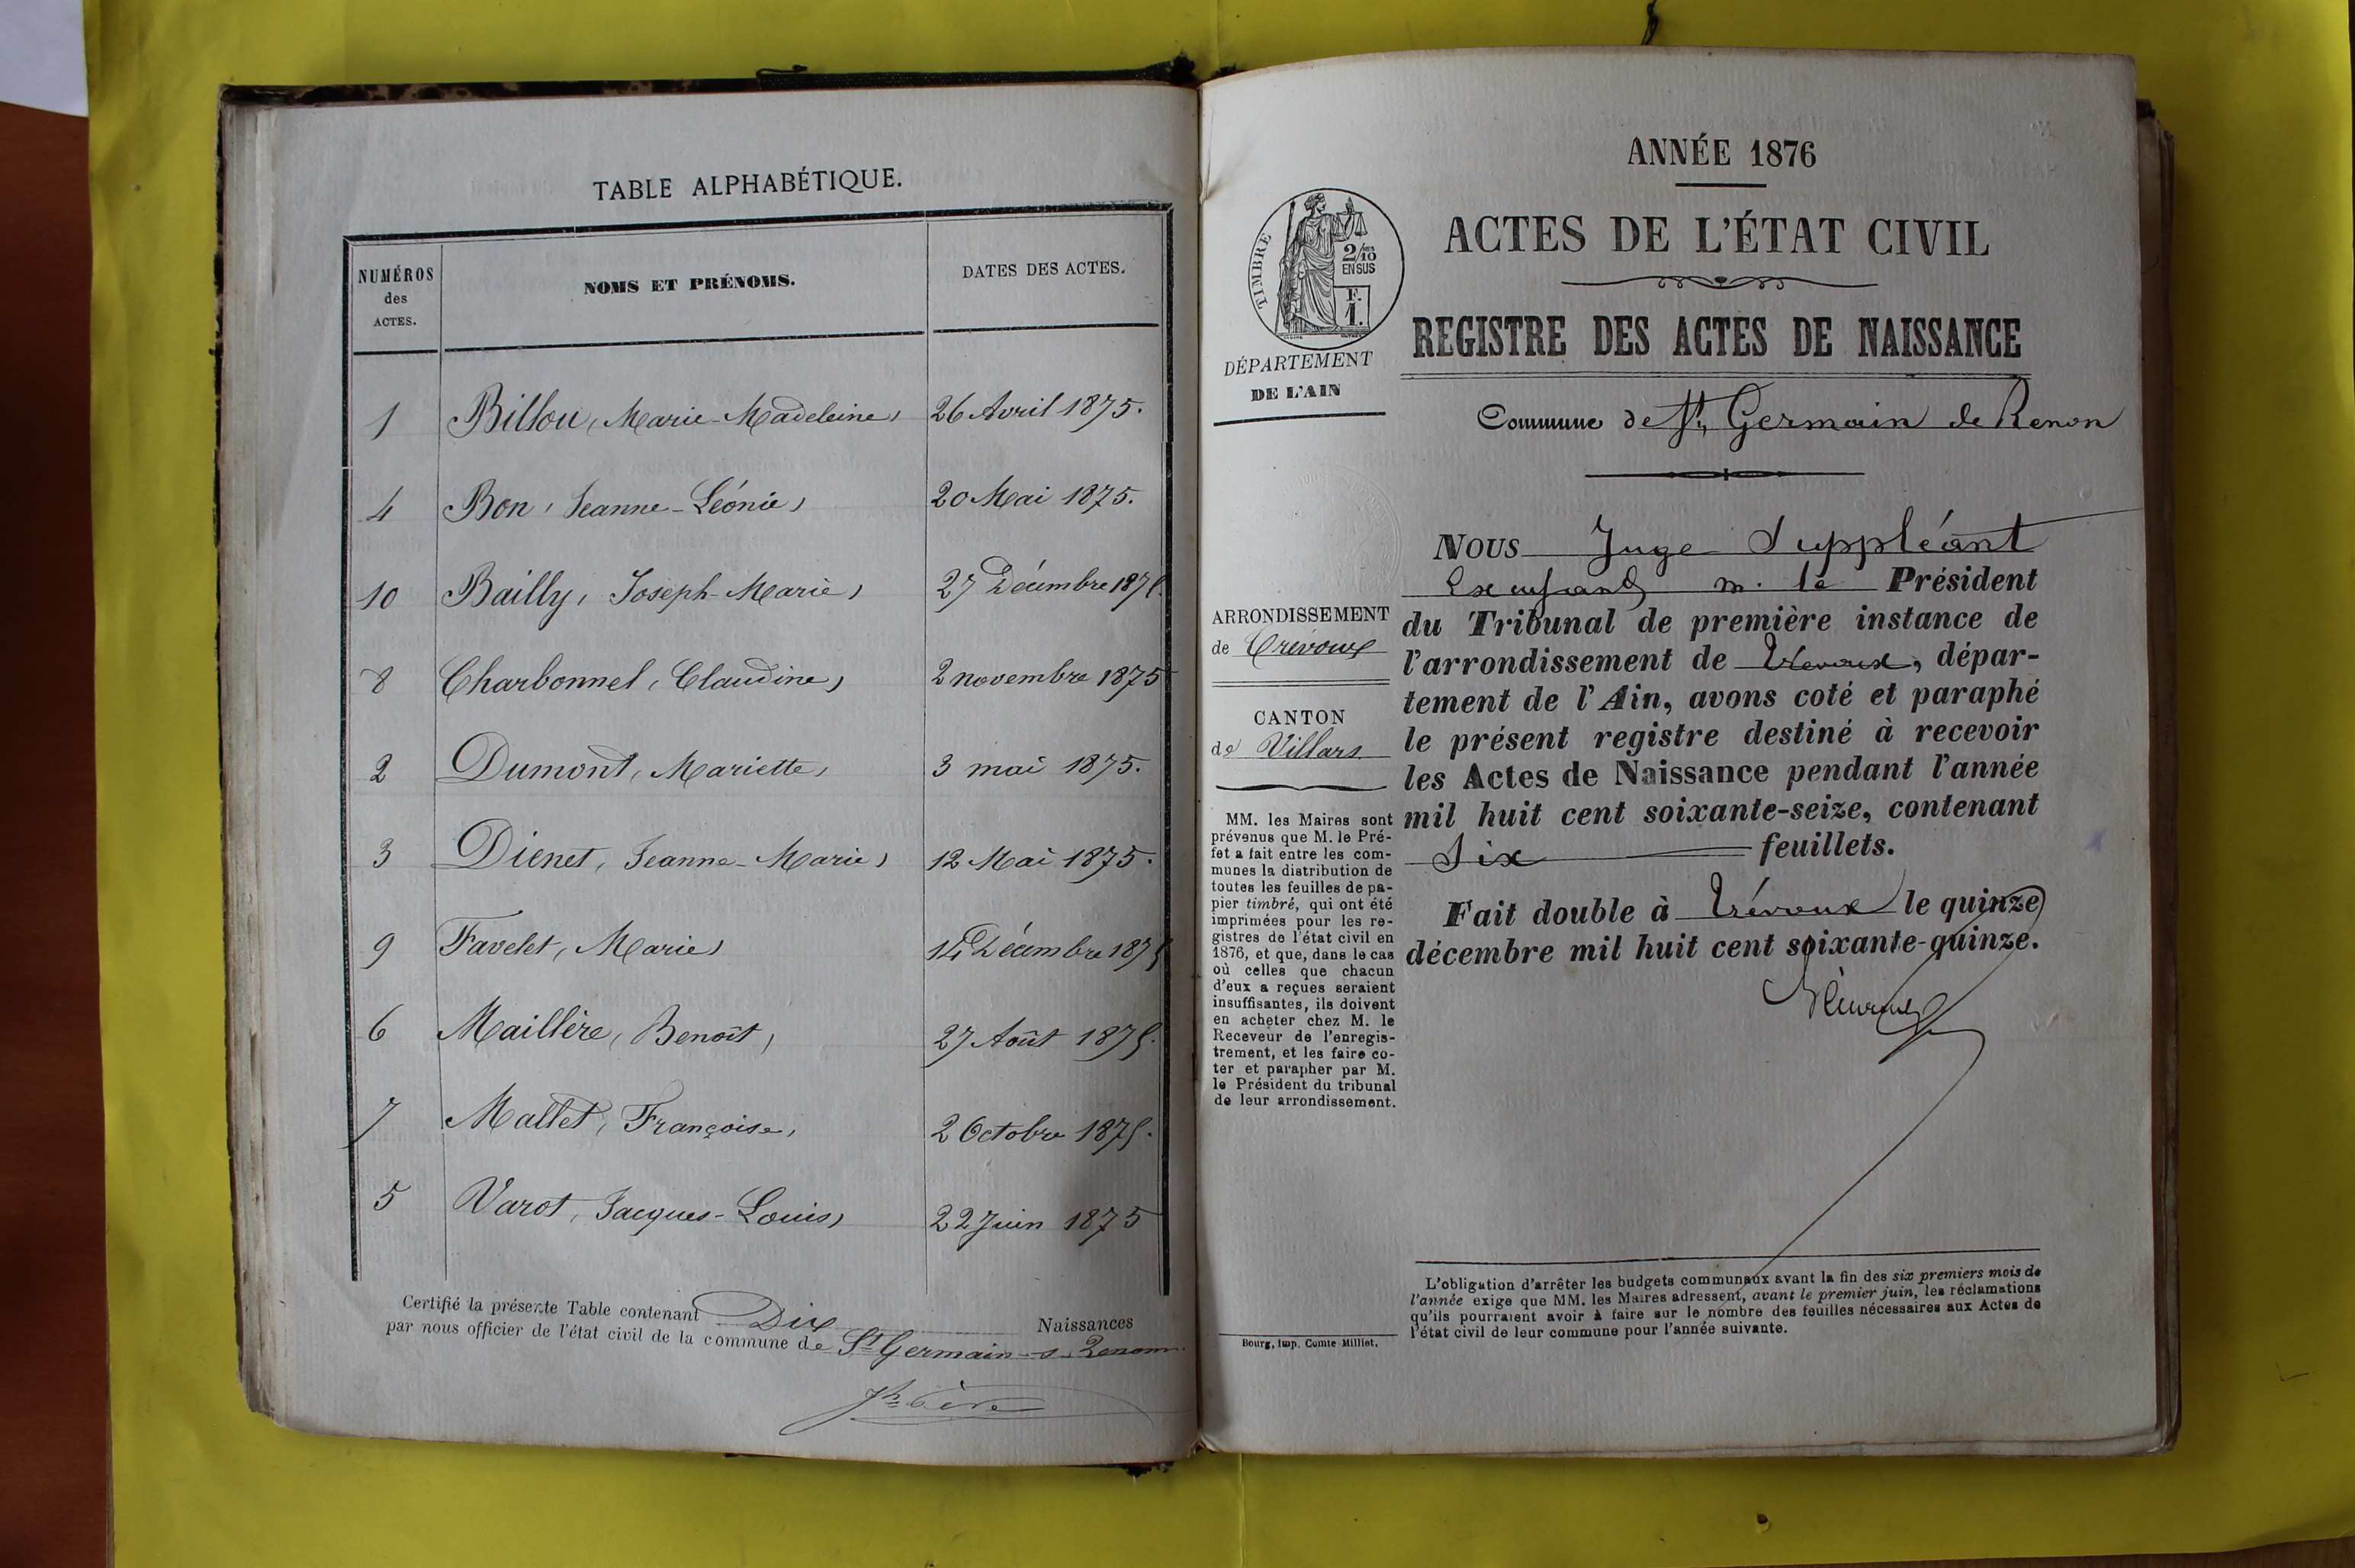 TABLE ALPHABÉTIQUE.
NUMÉROS
des
ACTES.
NOMS ET PRÉNOMS.
DATES DES ACTES.
1 Billou, Marie-Madeleine, 26 Avril 1875.
4 Bon, Jeanne-Léonie, 20 Mai 1875.
10 Bailly, Joseph-Marie, 27 Décembre 1875.
8 Charbonnel, Claudine, 2 novembre 1875
2 Dumont, Mariette, 3 mai 1875.
3 Dienet, Jeanne-Marie, 12 Mai 1875.
9 Favelet, Marie, 14 Décembre 1875
6 Maillère, Benoît, 27 Août 1875.
7 Mallet, Françoise, 2 Octobre 1875.
5 Varot, Jacques-Louis, 22 Juin 1875
Certifié la présente Table contenant Dix Naissances
par nous officier de l'état civil de la commune de St Germain-s-Renom
ANNÉE 1876
ACTES DE L'ÉTAT CIVIL
REGISTRE DES ACTES DE NAISSANCE
Commune de St Germain de Renon
TIMBRE
2/10
EN SUS
F.
1.
DÉPARTEMENT
DE L'AIN
ARRONDISSEMENT
de Trévoux
CANTON
de Villars
MM. les Maires sont
prévenus que M. le Pré-
fet a fait entre les com-
munes la distribution de
toutes les feuilles de pa-
pier timbré, qui ont été
imprimées pour les re-
gistres de l'état civil en
1876, et que, dans le cas
où celles que chacun
d'eux a reçues seraient
insuffisantes, ils doivent
en acheter chez M. le
Receveur de l'enregis-
trement, et les faire co-
ter et parapher par M.
le Président du tribunal
de leur arrondissement.
Bourg, imp. Comte-Milliet.
NOUS Juge Suppléant
m. le Président
du Tribunal de première instance de
l'arrondissement de Trévoux, dépar-
tement de l'Ain, avons coté et paraphé
le présent registre destiné à recevoir
les Actes de Naissance pendant l'année
mil huit cent soixante-seize, contenant
Six feuillets.
Fait double à Trévoux le quinze
décembre mil huit cent soixante-quinze.
L'obligation d'arrêter les budgets communaux avant la fin des six premiers mois de
l'année exige que MM. les Maires adressent, avant le premier juin, les réclamations
qu'ils pourraient avoir à faire sur le nombre des feuilles nécessaires aux Actes de
l'état civil de leur commune pour l'année suivante.